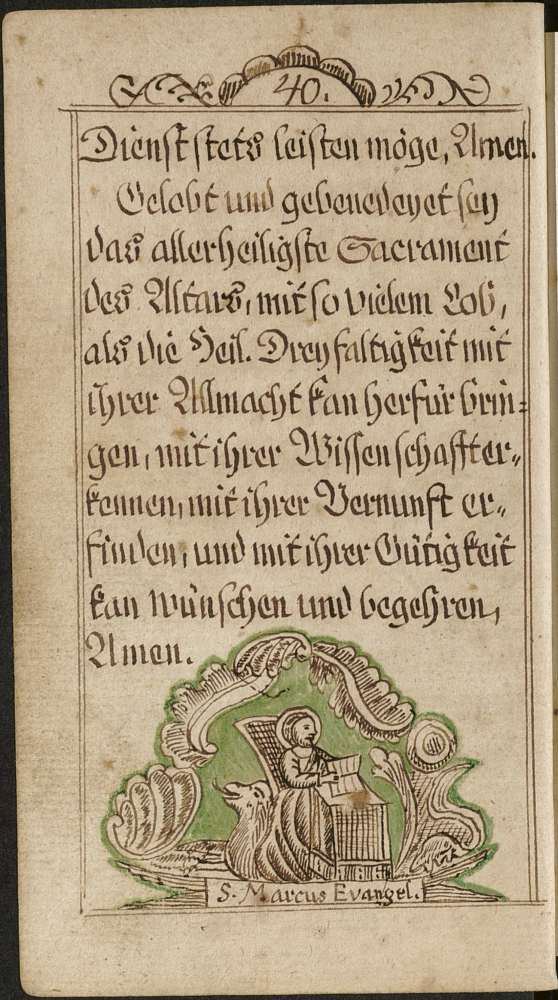 40.
Dienst stets leisten möge, Amen.
Gelobt und gebenedeyet sey
das allerheiligste Sacrament
des Altars, mit so vielem Lob,
als die Heil. Dreyfaltigkeit mit
ihrer Allmacht kan herfür brin=
gen, mit ihrer Wissenschafft er„
kennen, mit ihrer Vernunft er„
finden, und mit ihrer Gütigkeit
kan wünschen und begehren,
Amen.
S. Marcus Evangel.